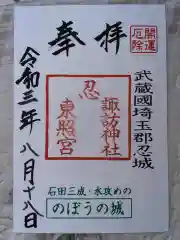 開運
厄除
奉拝
武蔵國埼玉郡忍城
忍
諏訪神社
東照宮
令和三年八月十八日
石田三成・水攻めの
のぼうの城